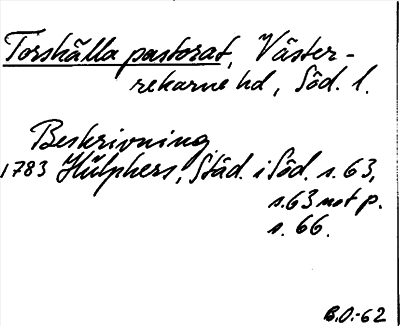 Torshälla pastorat, Väster-
rekarne hd, Söd. l.
Beskrivning.
1783 Hülphers, Städ. i Söd. s. 63,
s. 63 not p.
s. 66.
B.O.-62